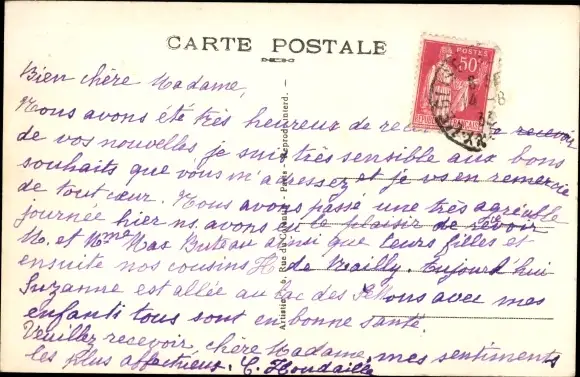 CARTE POSTALE
POSTES
50c
Bien chère Madame,
Nous avons été très heureux de recevoir
de vos nouvelles je suis très sensible aux bons
souhaits que vous m'adressez et je vs en remercie
de tout cœur. Nous avons passé une très agréable
journée hier ns. avons eu le plaisir de revoir
M. et Mme Mas Buteau ainsi que leurs filles et
ensuite nos cousins H de Mailly. Aujourd'hui
Suzanne est allée au lac des avec mes
enfants tous sont en bonne santé.
Veuillez recevoir, chère Madame, mes sentiments
les plus affectueux. C. Houdaille